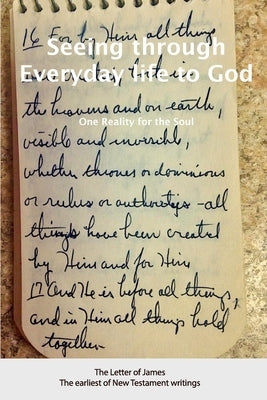 16 For by Him all things
Seeing through
Everyday life to God
the heavens and on earth,
One Reality for the Soul
visible and invisible,
whether thrones or dominions
or rulers or authorities -all
things have been created
by Him and for Him
17 And He is before all things,
and in Him all things hold
together
The Letter of James
The earliest of New Testament writings